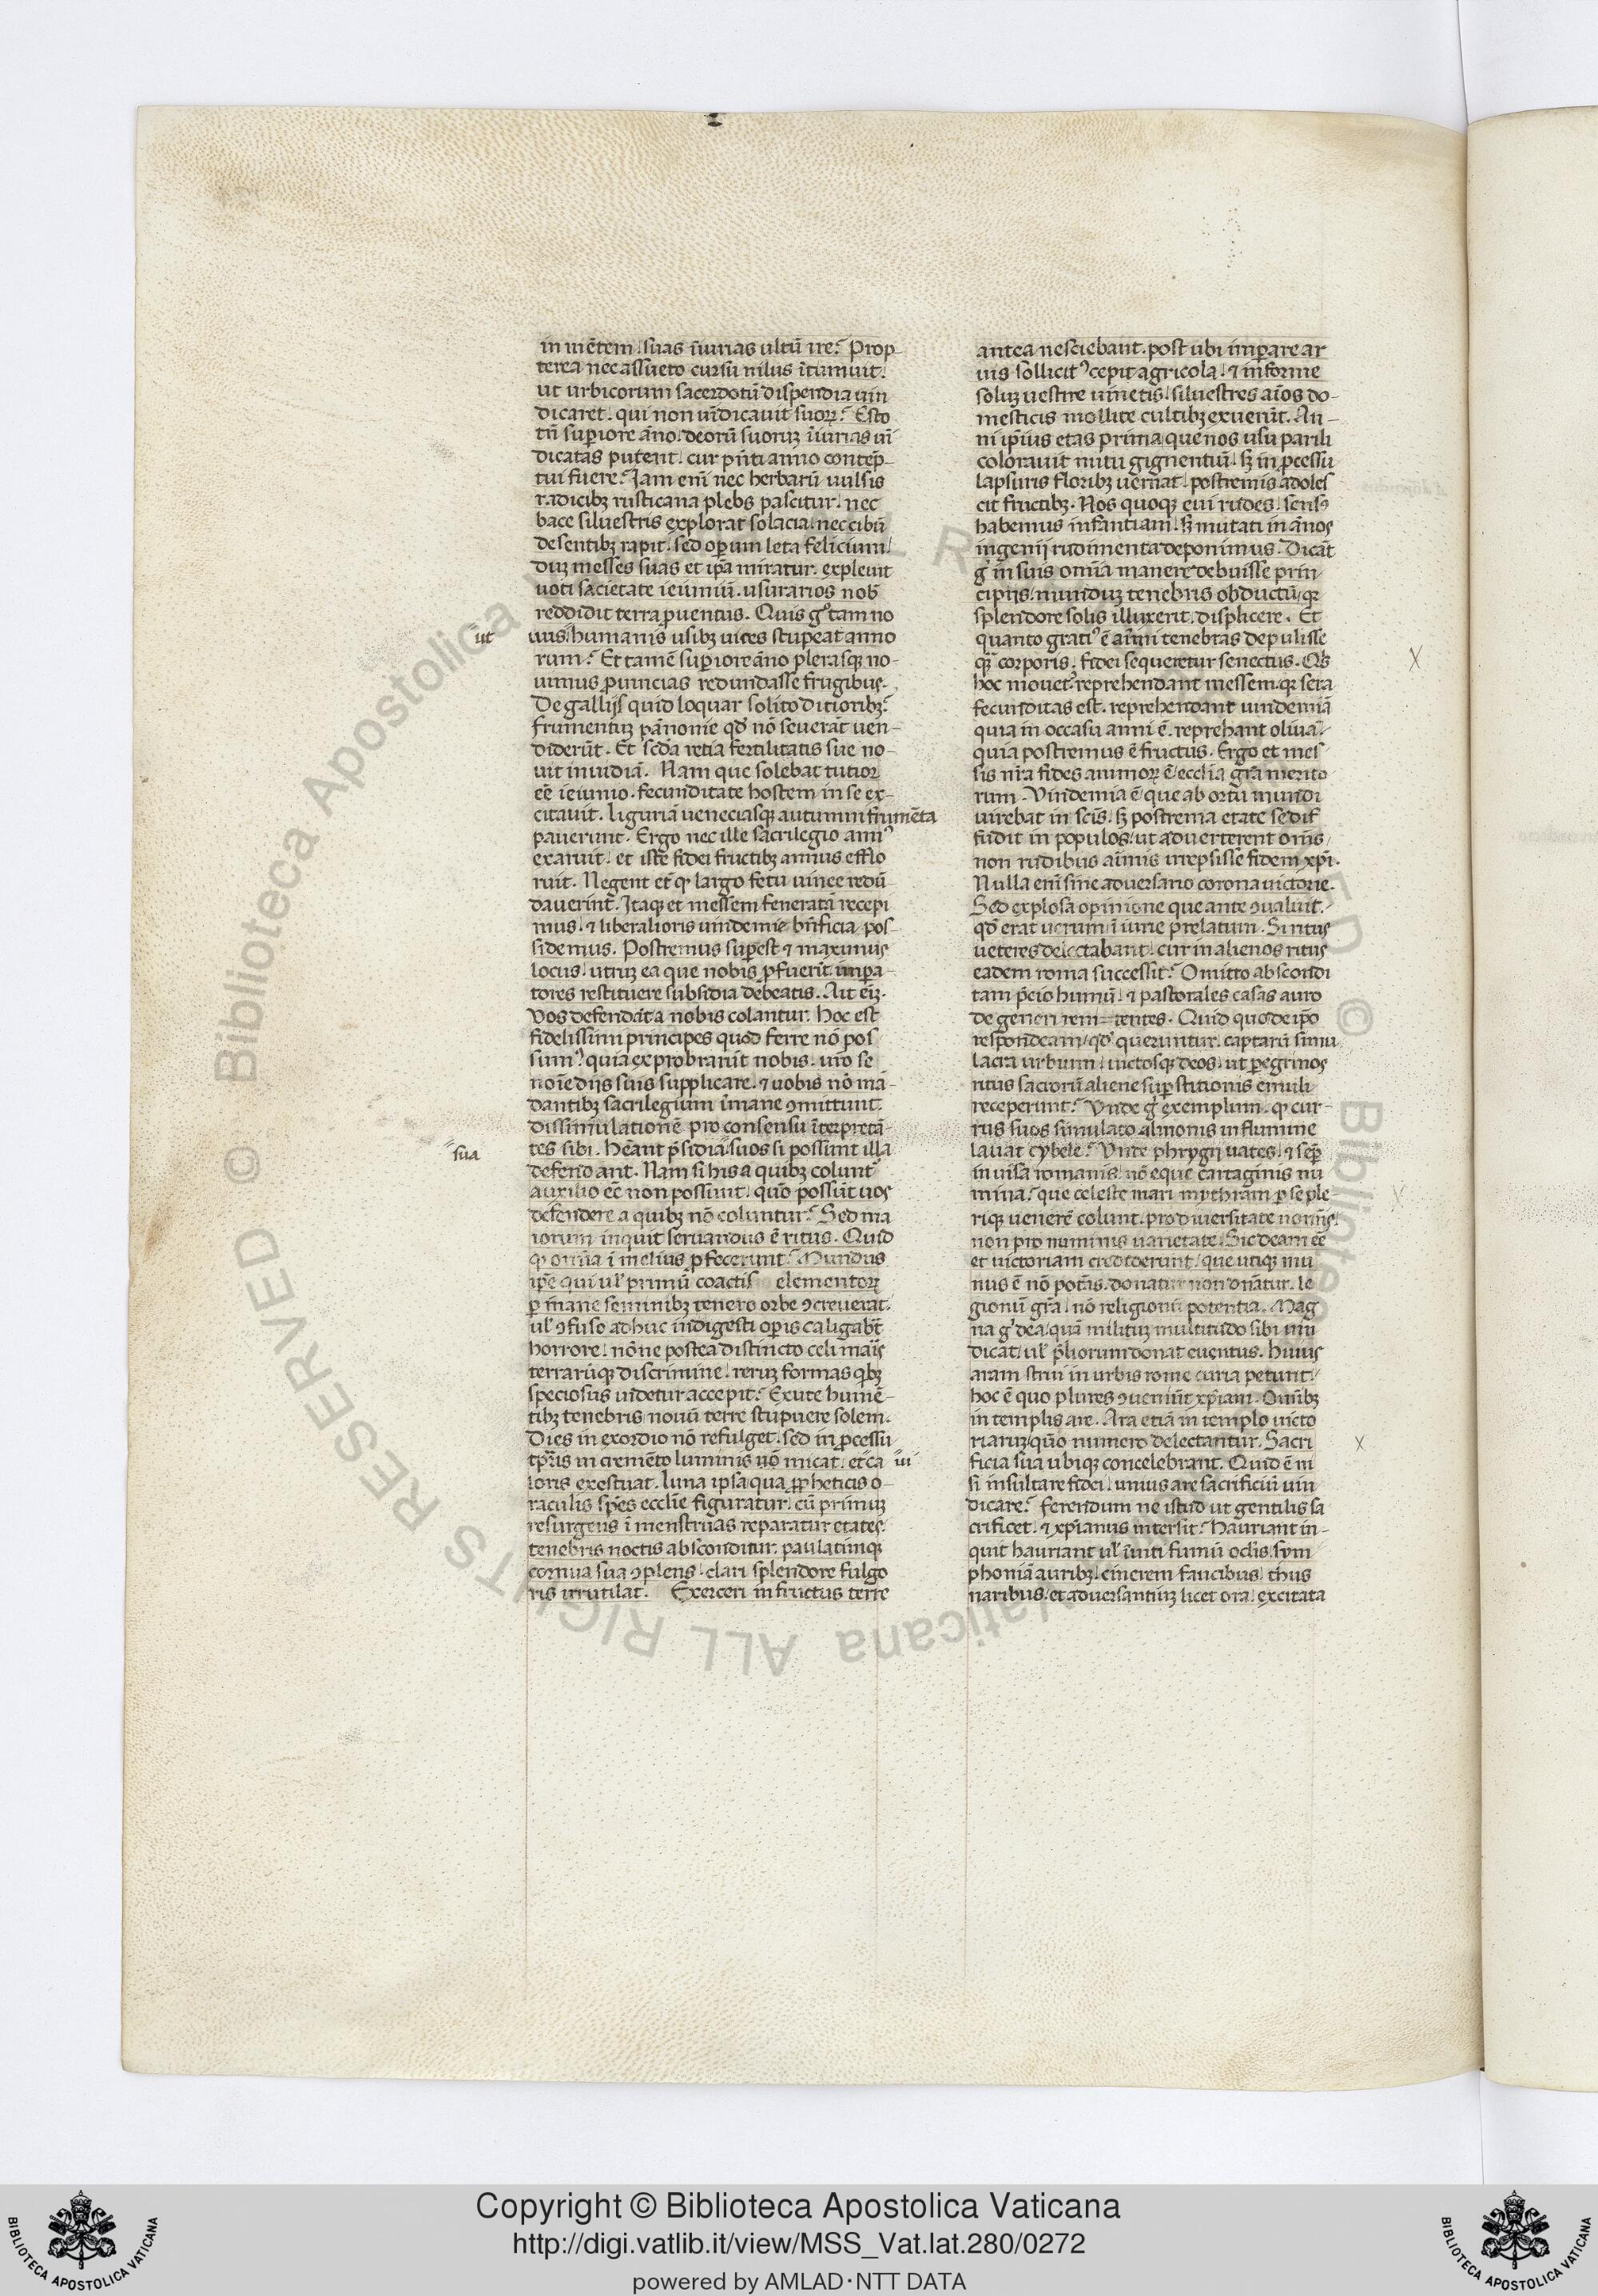 in mētem. suas iniurias ultū ire? Prop-
terea nec assueto cursu nilus ītumuit.
ut urbicorum sacerdotū dispendia uin
dicaret. qui non uīdicauit suoꝝ? Esto
tn̄ suꝑiore āno. deorū suoruꝫ iniurias uī
dicatas putent. cur pn̄ti anno contēp-
tui fuere? Jam enī nec herbarū uulsis
radicibꝫ rusticana plebs pascitur. nec
bace siluestris explorat solacia. nec cibū
de sentibꝫ rapit. sed oꝑum leta felicium.
duꝫ messes suas et ip̄a miratur. expleuit
uoti sacietate ieiuniū. usurarios nob̄
reddidit terra ꝓuentus. Quis gͦ tam no
ut
uus humanis usibꝫ uices stupeat anno
rum? Et tamē suꝑiore āno plerasqꝫ no-
uimus ꝓuincias redundasse frugibus.
De gallijs quid loquar solito ditioribꝫ?
frumentuꝫ pānonie qđ nō seuerāt uen-
diderūt. Et scđa retia fertilitatis sue no-
uit inuidiā. Nam que solebat tutior
eē ieiunio. fecunditate hostem in se ex-
citauit. liguriā ueneciasqꝫ autumni frumēta
pauerunt. Ergo nec ille sacrilegio annꝰ
exaruit. et iste fidei fructibꝫ annus efflo
ruit. Negent et̄ ꝙ largo fetu uinee redū-
dauerint. Itaqꝫ et messem feneratā recepi
mus. ⁊ liberalioris uindemie bn̄ficia pos-
sidemus. Postremus suꝑest ⁊ maximus
locus. utruꝫ ea que nobis ꝓfuerīt impa-
tores restituere subsidia debeatis. Ait eīꝫ.
Vos defendāt a nobis colantur. Hoc est
fidelissimi principes quod ferre nō pos
sumꝰ. quia exprobrarūt nobis. uīo se
noīe diis suis supplicare. ⁊ uobis nō mā-
dantibꝫ sacrilegium īmane ꝯmittunt.
dissimulationē pro consensu īterpretā-
sua
tes sibi. Heāant p̄sidia suos si possunt illa
defendant. Nam si his a quibꝫ colunt᷑
auxilio eē non possunt. quō possūt uos
defendere a quibꝫ nō coluntur? Sed ma
iorum inquit seruandus ē ritus. Quid
ꝙ omīa ī melius ꝓfecerunt? Mundus
ip̄e qui ul̓ primū coactis elementoꝝ
ꝑ inane seminibꝫ tenero orbe ꝯcreuerat.
ul̓ ꝯfuso adhuc indigesti oꝑis caligab̄t
horrore. nōne postea distincto celi maīs
terrarūqꝫ discrimine. reruꝫ formas qͥbꝫ
speciosus uidetur accepit? Exute humē-
tibꝫ tenebris nouū terre stupuere solem.
Dies in exordio nō refulget. sed in ꝓcessu
tꝑis in cremēto luminis uō micat. et ca ui
loris exestuat. luna ipsa qua ꝓpheticis o-
raculis spēs eccl̄ie figuratur. cū primuꝫ
resurgens ī menstruas reparatur etates.
tenebris noctis absconditur. paulatimqꝫ
cornua sua ꝯplens. clari splendore fulgo
ris irrutilat. Exerceri in fructus terre
antea nesciebant. post ubi imꝑare ar
uis sollicitꝰ cepit agricola. ⁊ informe
soluꝫ uestire uinetis. siluestres aīos do-
mesticis mollite cultibꝫ exuerūt. An-
ni ip̄ius etas prima que nos usu parili
colorauit nutu gignentiū. sꝫ in ꝓcessu
lapsuris floribꝫ uernat. postremis adoles
cit fructibꝫ. Nos quoqꝫ eui rudes. sensꝰ
habemus infantiam. sꝫ mutati in ānos
ingenij rudimenta deponimus. Dicāt
gͦ in suis omīa manere debuisse prin
cipijs. munduꝫ tenebris obductū. qꝛ
splendore solis illuxerit. displicere. Et
quanto gratiꝰ ē animi tenebras depulisse
qͣꝫ corporis. fidei sequeretur senectus. Qͦs
X
hoc mouet. reprehendant messem. qꝛ sera
fecunditas est. reprehendant uindemiā
quia in occasu anni ē. reprehant oliuā.
quia postremus ē fructus. Ergo et mes
sis nr̄a fides animoꝝ ē. eccl̄ia gr̄a merito
rum. Vindemia ē que ab ortu mundi
uirebat in scīs. sꝫ postrema etate se dif
fudit in populos. ut aduerterent om̄s.
non rudibus aīmis irrepsisse fidem xp̄i.
Nulla enī sine aduersario corona uictorie.
Sed explosa opinione que ante ꝯualuit.
qđ erat uerum. ī iure prelatum. Si ritus
ueteres delectabant. cur in alienos ritus
eadem roma successit? Omitto abscondi
tam p̄cio humū. ⁊ pastorales casas auro
degeneri renitentes. Quid quo de ip̄o
respondeam. qđ queruntur. captarū simu
lacra urbium. uictosqꝫ deos. ut ꝑegrinos
ritus sacrorū aliene suꝑstitionis emuli
receperunt? Vnde gͦ exemplum. ꝙ cur-
rus suos simulato almonis in flumine
lauat cybele? Vnde phrygij uates. ⁊ semꝑ
inuisa romanis. nō eque cartaginis nu
mina? que celeste mari mythiram ꝑse ple-
riqꝫ uenerē colunt. pro diuersitate nomīs.
non pro numinis uarietate. Sic deam eē
et uictoriam crediderunt. que utiqꝫ mu
nus ē nō potās. donatur non dn̄atur. le
gionū gr̄a. nō religionū potentia. Mag
na gͦ dea. quā milituꝫ multitudo sibi uin
dicāt. ul̓ p̄liorum donat euentus. Huius
aram strui in urbis rome curia petunt.
hoc ē quo plures ꝯueniūt xp̄iani. Omībꝫ
in templis are. Ara etiā in templo uicto
riaruꝫ. quō numero delectantur. Sacri
X
ficia sua ubiqꝫ concelebrant. Quid ē ni
si insultare fidei. unius are sacrificiū uin
dicare? ferendum ne istud ut gentilis sa
crificet. ⁊ xp̄ianus intersit? Hauriant in-
quit hauriant ul̓ inuiti fumū oclīs. sym
phoniā auribꝫ. cinerem faucibus. thus
naribus. et aduersantiuꝫ licet ora. excitata
Copyright © Biblioteca Apostolica Vaticana
http://digi.vatlib.it/view/MSS_Vat.lat.280/0272
powered by AMLAD·NTT DATA
BIBLIOTECA APOSTOLICA VATICANA
BIBLIOTECA APOSTOLICA VATICANA